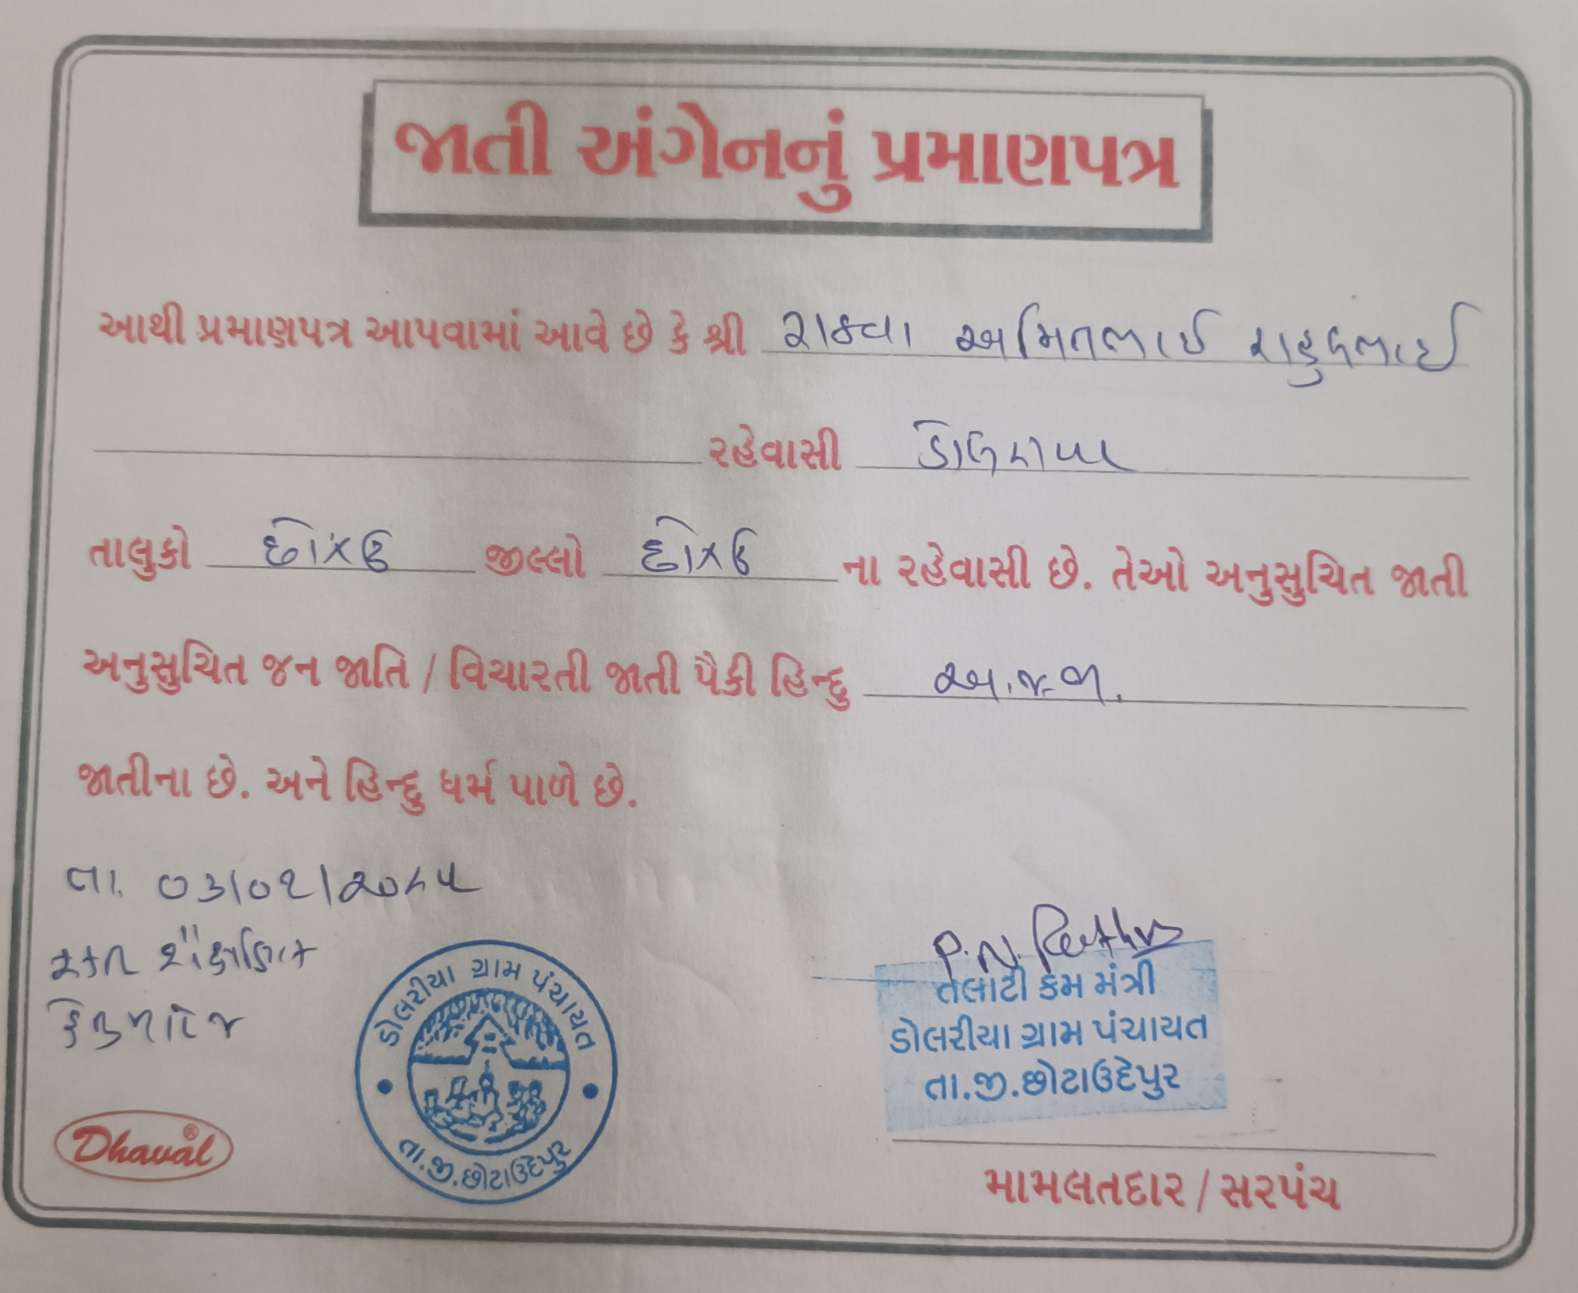 જાતી અંગેનનું પ્રમાણપત્ર
આથી પ્રમાણપત્ર આપવામાં આવે છે કે શ્રી રાઠવા અમિતભાઈ રાહુલભાઈ
રહેવાસી
તાલુકો છો.ઉ જીલ્લો છો.ઉ ના રહેવાસી છે. તેઓ અનુસુચિત જાતી
અનુસુચિત જન જાતિ / વિચારતી જાતી પૈકી હિન્દુ અ.જ.જા.
જાતીના છે. અને હિન્દુ ધર્મ પાળે છે.
તા. ૦૩/૦૨/૨૦૨૫
શૈક્ષણિક
P.N. Rathva
તલાટી કમ મંત્રી
ડોલરીયા ગ્રામ પંચાયત
તા.જી.છોટાઉદેપુર
ડોલરીયા ગ્રામ પંચાયત
તા.જી.છોટાઉદેપુર
Dhaval ®
મામલતદાર / સરપંચ